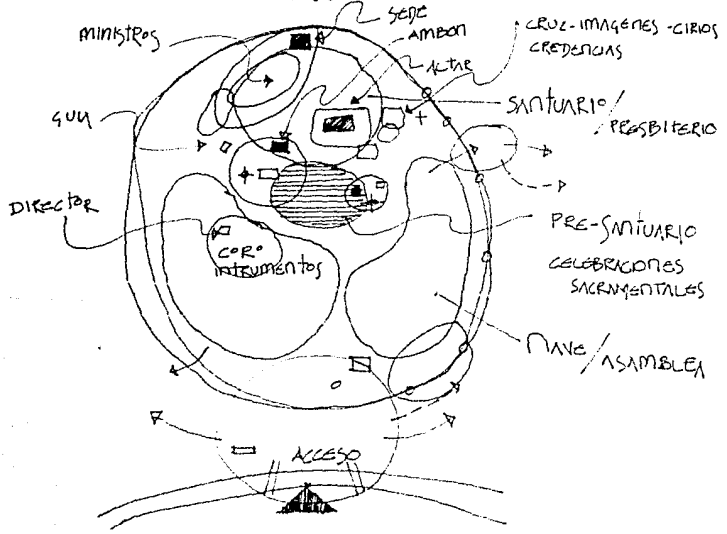 SEDE
MINISTROS
AMBON
CRUZ-IMAGENES-CIRIOS
CREDENCIAS
ALTAR
SANTUARIO/
PRESBITERIO
DIRECTOR
CORO
INTRUMENTOS
PRE-SANTUARIO
CELEBRACIONES
SACRAMENTALES
NAVE/ASAMBLEA
ACCESO